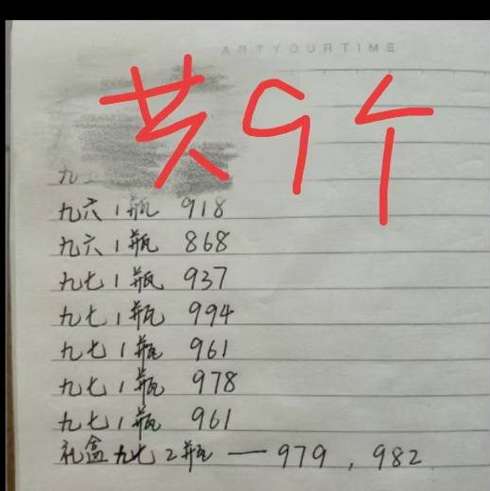 ARTYOURTIME
共9个
九
九六1瓶 918
九六1瓶 868
九七1瓶 937
九七1瓶 994
九七1瓶 961
九七1瓶 978
九七1瓶 961
礼盒九七2瓶 — 979, 982